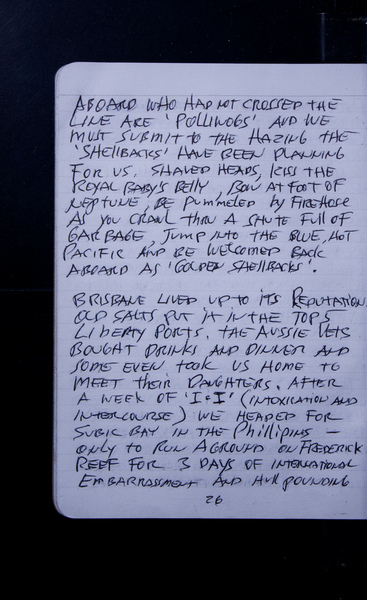 ABOARD WHO HAD NOT CROSSED THE
LINE ARE 'POLLIWOGS' AND WE
MUST SUBMIT to THE HAZING THE
'SHELLBACKS' HAVE BEEN PLANNING
FOR US. SHAVED HEADS, KISS THE
ROYAL BABY'S BELLY, BOW AT FOOT OF
NEPTUNE, BE PUMMELED by FIREHOSE
AS YOU CRAWL THRU A SHUTE FULL OF
GARBAGE, JUMP INTO THE BLUE, HOT
PACIFIC AND BE WELCOMED BACK
ABOARD AS 'GOLDEN SHELLBACKS'.
BRISBANE LIVED UP to ITS REPUTATION.
OLD SALTS PUT IT IN THE TOP 5
LIBERTY PORTS. THE AUSSIE VETS
BOUGHT DRINKS AND DINNER AND
SOME EVEN took US HOME TO
MEET their DAUGHTERS. AFTER
A WEEK OF 'I & I' (INTOXICATION AND
INTERCOURSE) WE HEADED FOR
SUBIC BAY IN THE Phillipins —
ONLY to RUN AGROUND ON FREDERICK
REEF FOR 3 DAYS OF INTERNATIONAL
EMBARRASSMENT AND HULL POUNDING
26